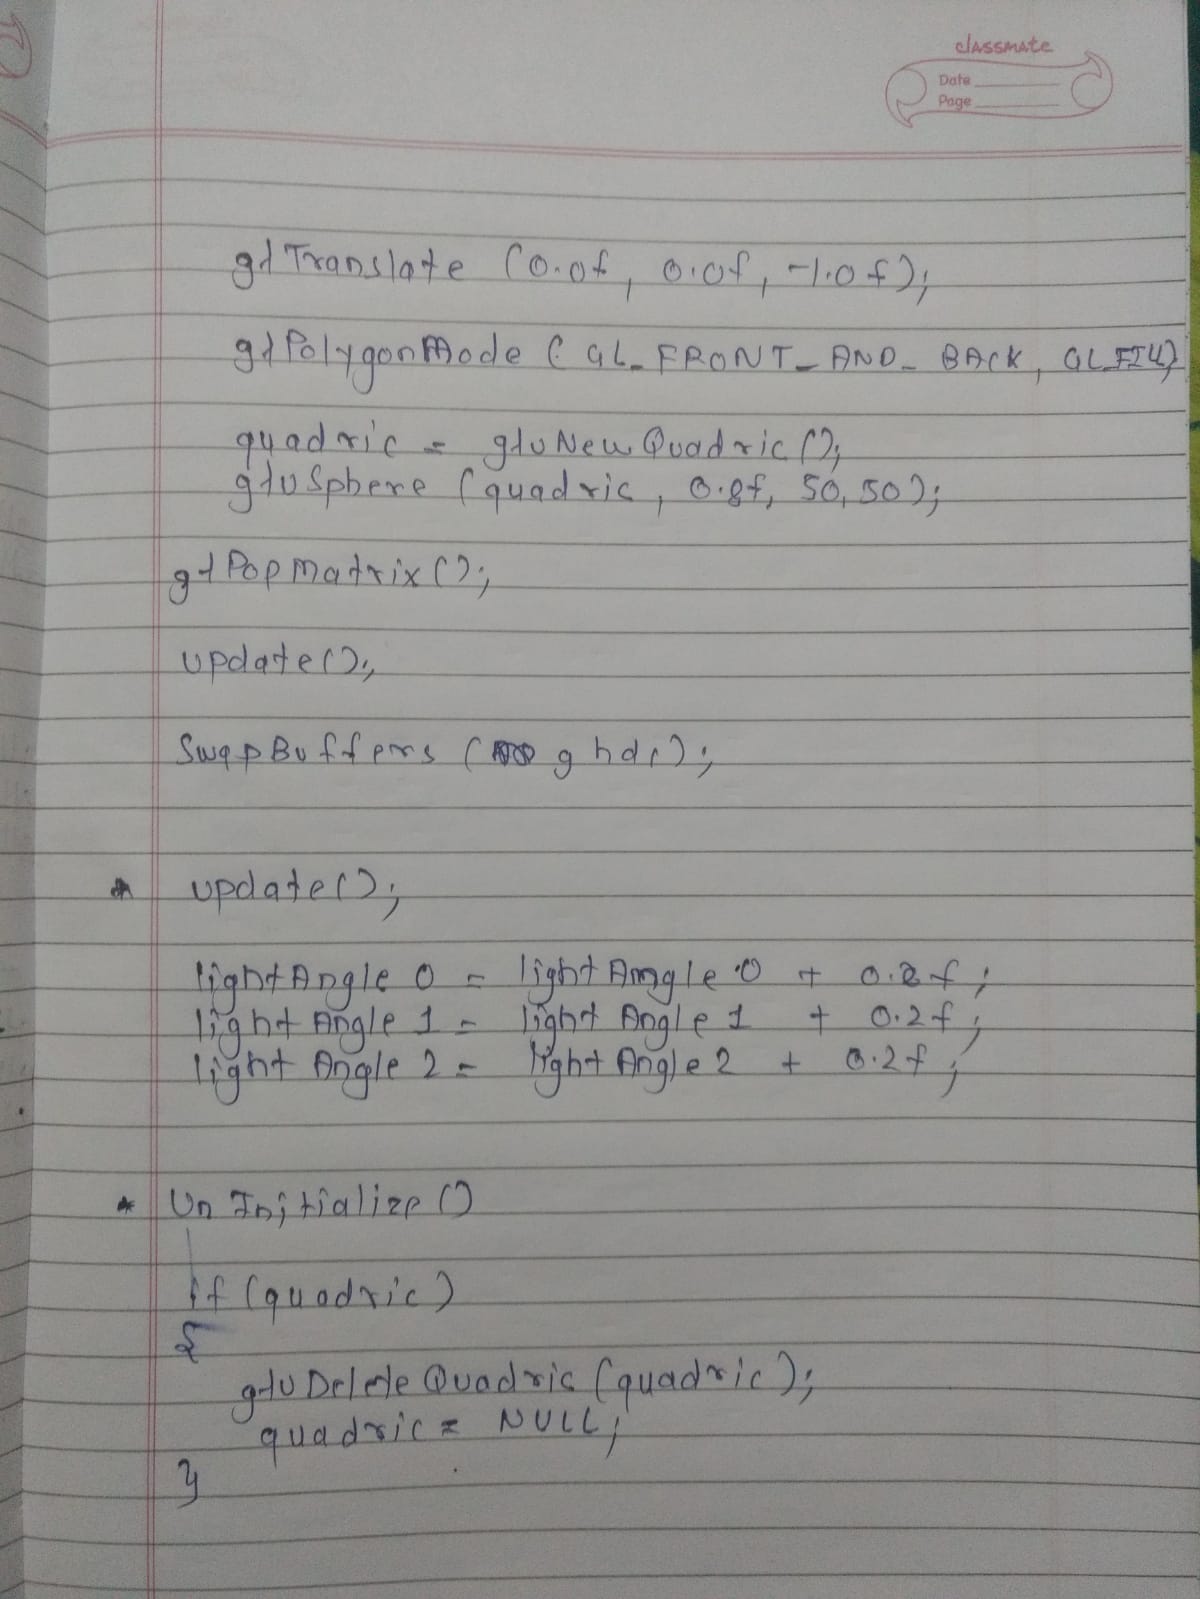 classmate
Date
Page
glTranslate (0.0f, 0.0f, -1.0f);
glPolygonMode ( GL_FRONT_AND_BACK, GL_FILL)
quadric = gluNewQuadric();
gluSphere (quadric, 0.8f, 50, 50);
glPopMatrix();
update();
SwapBuffers ( ghdc);
* update();
lightAngle 0 = lightAngle 0 + 0.2f;
lightAngle 1 = lightAngle 1 + 0.2f;
lightAngle 2 = lightAngle 2 + 0.2f;
* UnInitialize()
if (quadric)
{
gluDeleteQuadric (quadric);
quadric = NULL;
}